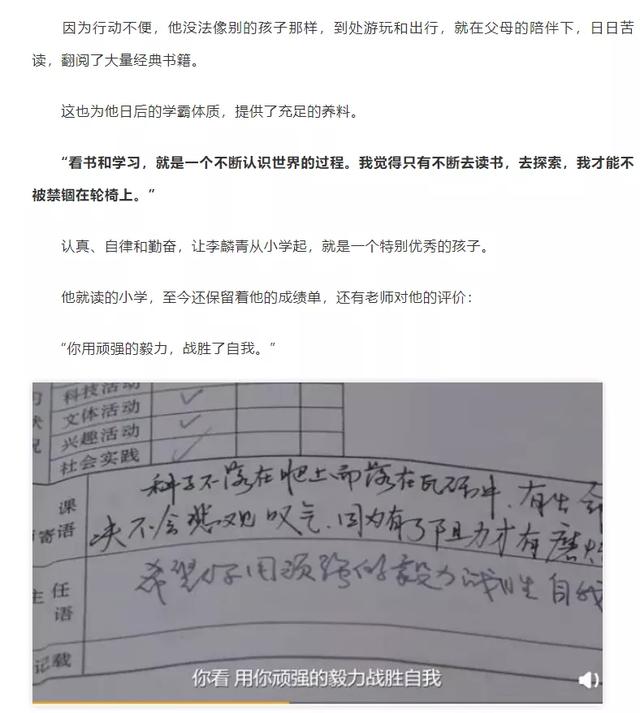 因为行动不便，他没法像别的孩子那样，到处游玩和出行，就在父母的陪伴下，日日苦
读，翻阅了大量经典书籍。
这也为他日后的学霸体质，提供了充足的养料。
“看书和学习，就是一个不断认识世界的过程。我觉得只有不断去读书，去探索，我才能不
被禁锢在轮椅上。”
认真、自律和勤奋，让李麟青从小学起，就是一个特别优秀的孩子。
他就读的小学，至今还保留着他的成绩单，还有老师对他的评价：
“你用顽强的毅力，战胜了自我。”
科技活动
文体活动
兴趣活动
社会实践
课
寄语
种子不落在肥土而落在瓦砾中，有生命
决不会悲观叹气，因为有了阻力才有磨炼
主任
语
希望你用顽强的毅力战胜自我
记载
你看 用你顽强的毅力战胜自我